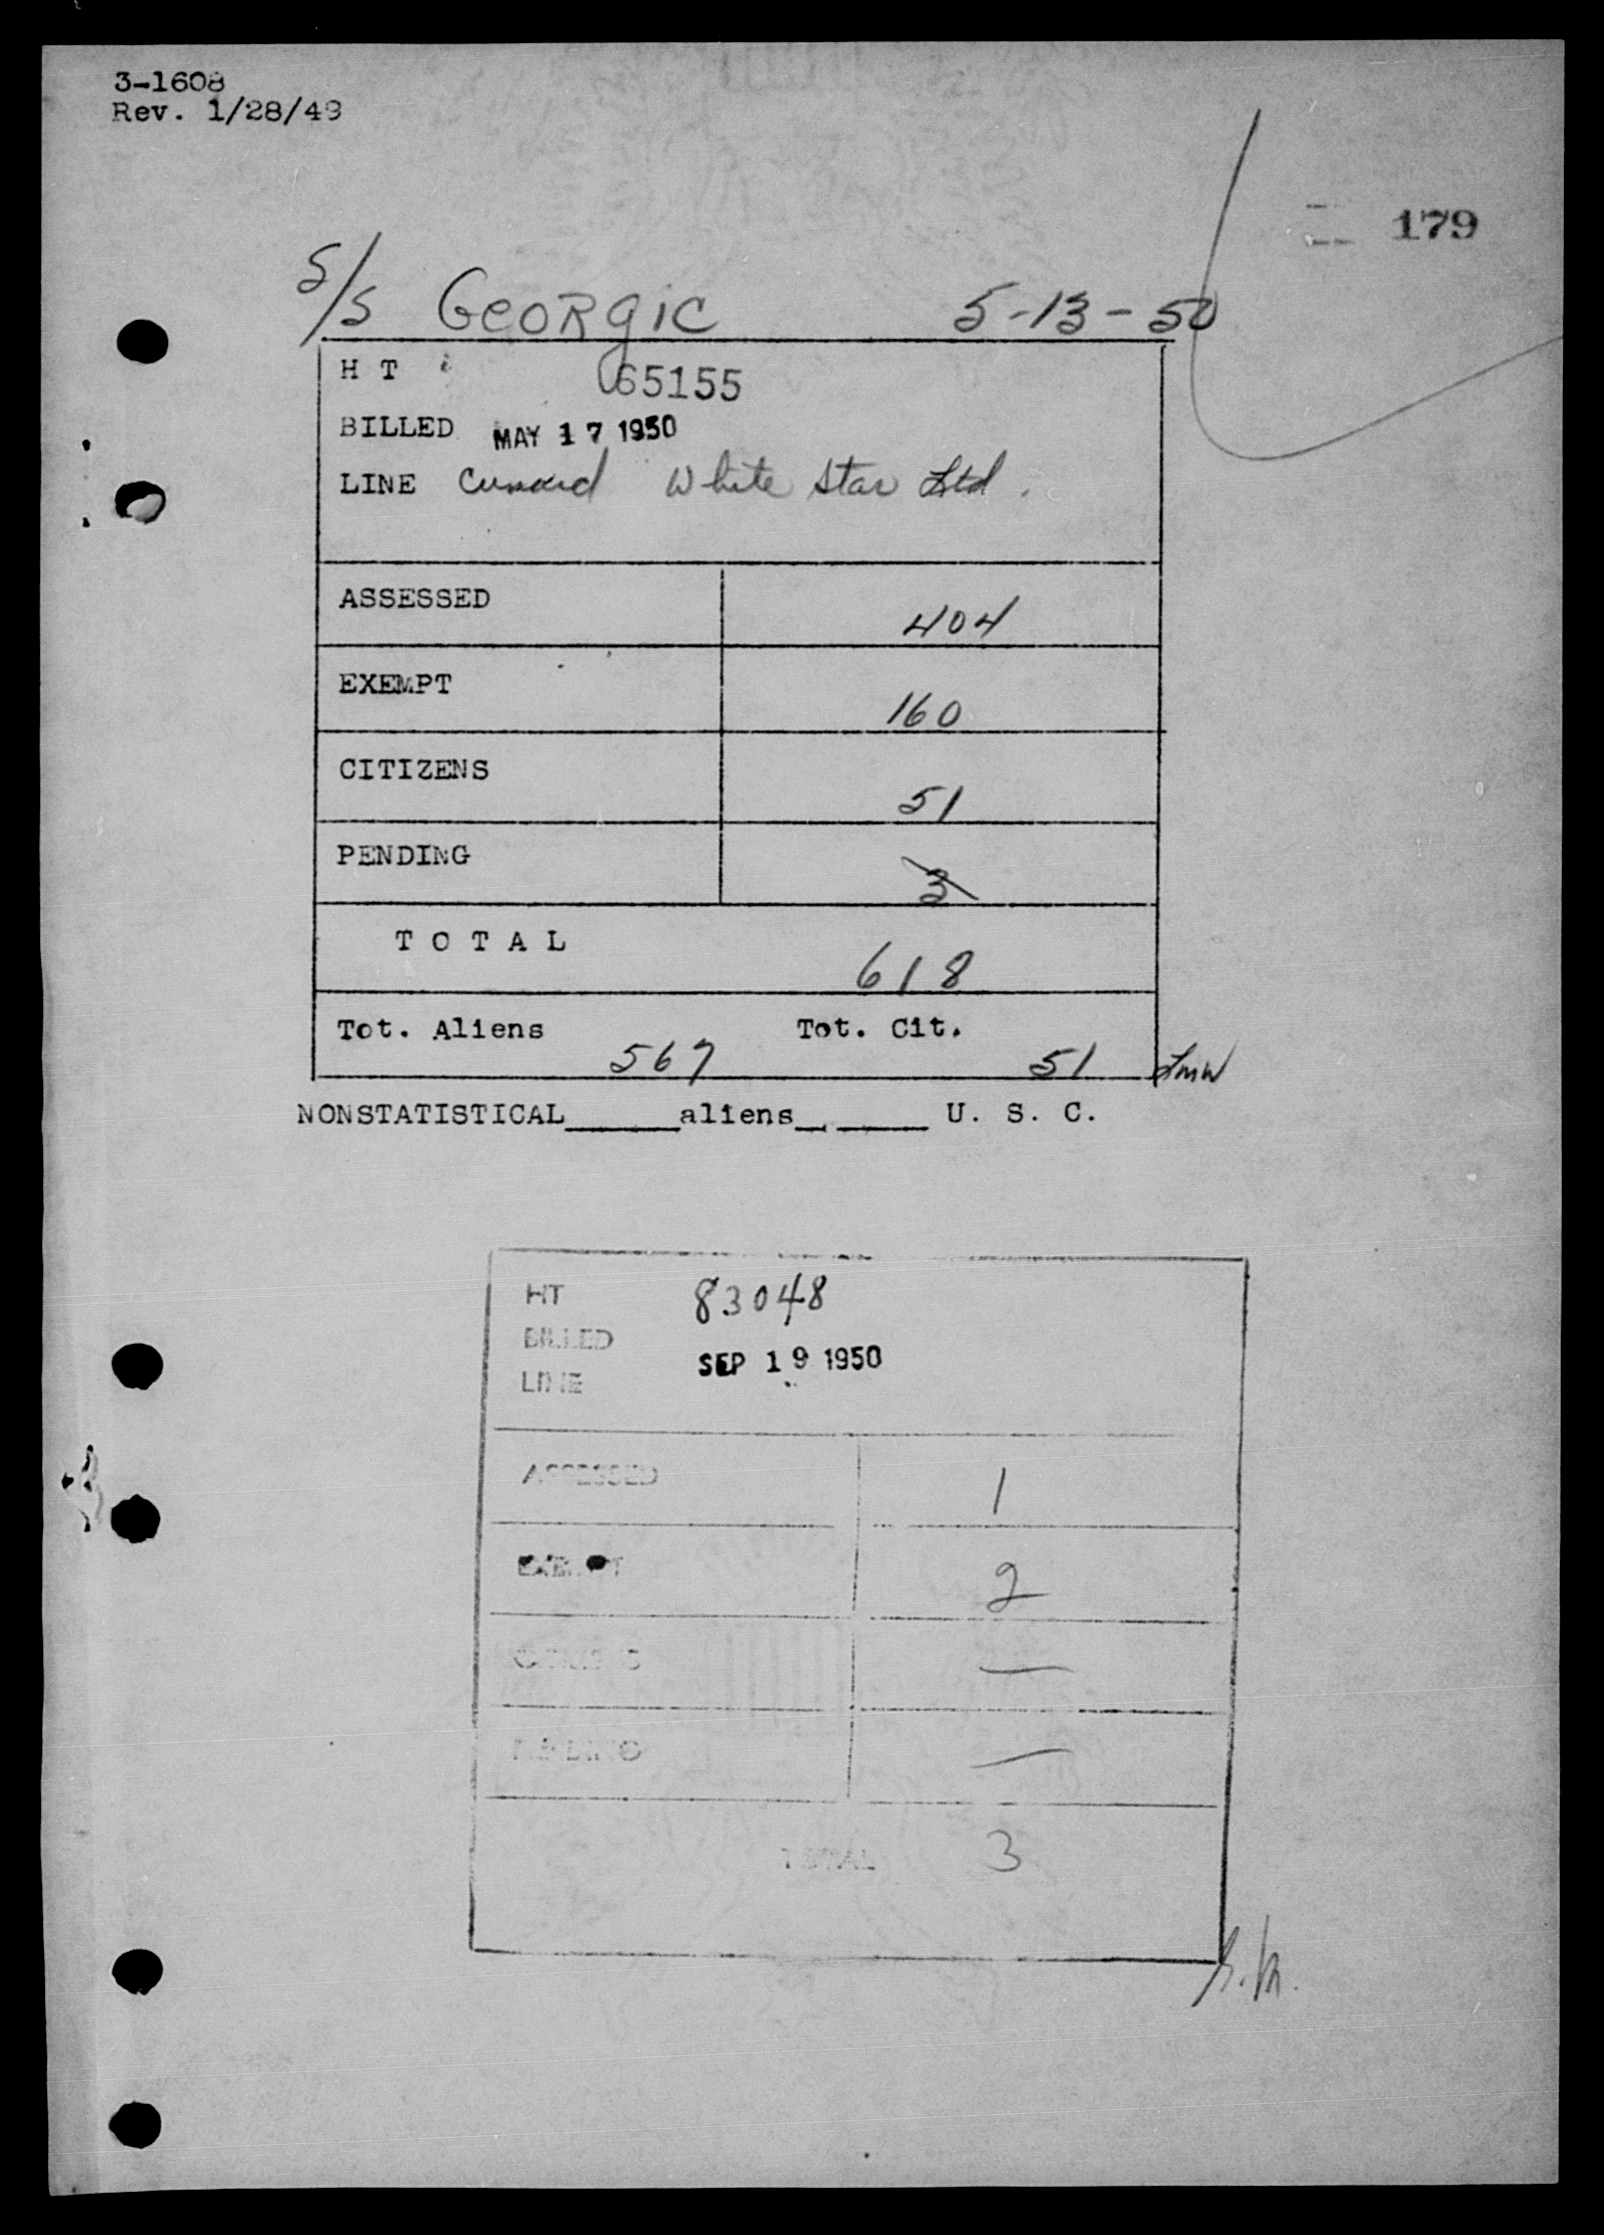 3-1608
Rev. 1/28/49
179
S/S Georgic 5-13-50
H T 65155
BILLED MAY 17 1950
LINE Cunard White Star Ltd.
ASSESSED 404
EXEMPT 160
CITIZENS 51
PENDING 3
TOTAL 618
Tot. Aliens 567 Tot. Cit. 51 LMW
NONSTATISTICAL aliens U. S. C.
HT 83048
BILLED SEP 19 1950
LINE
ASSESSED 1
EXEMPT 2
CITIZENS —
PENDING —
TOTAL 3